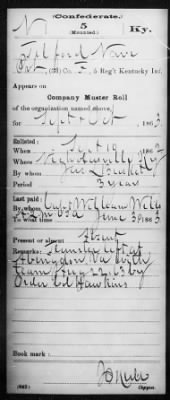 (Confederate.)
N 5 Ky.
(Mounted.)
Telford Nave
Pvt, (2d) Co. F, 5 Reg't Kentucky Inf.
Appears on
Company Muster Roll
of the organization named above,
for Sept & Oct, 1863.
Enlisted:
When Sept 19
Where Ky
By whom Jas
Period 3 years
Last paid:
By whom Capt William
To what time June 30 1863
Present or absent Absent
Remarks: Teamster left at
Abingdon Va with
team Aug 22 63 by
Order Col Hawkins
Book mark:
(642) Copyist.